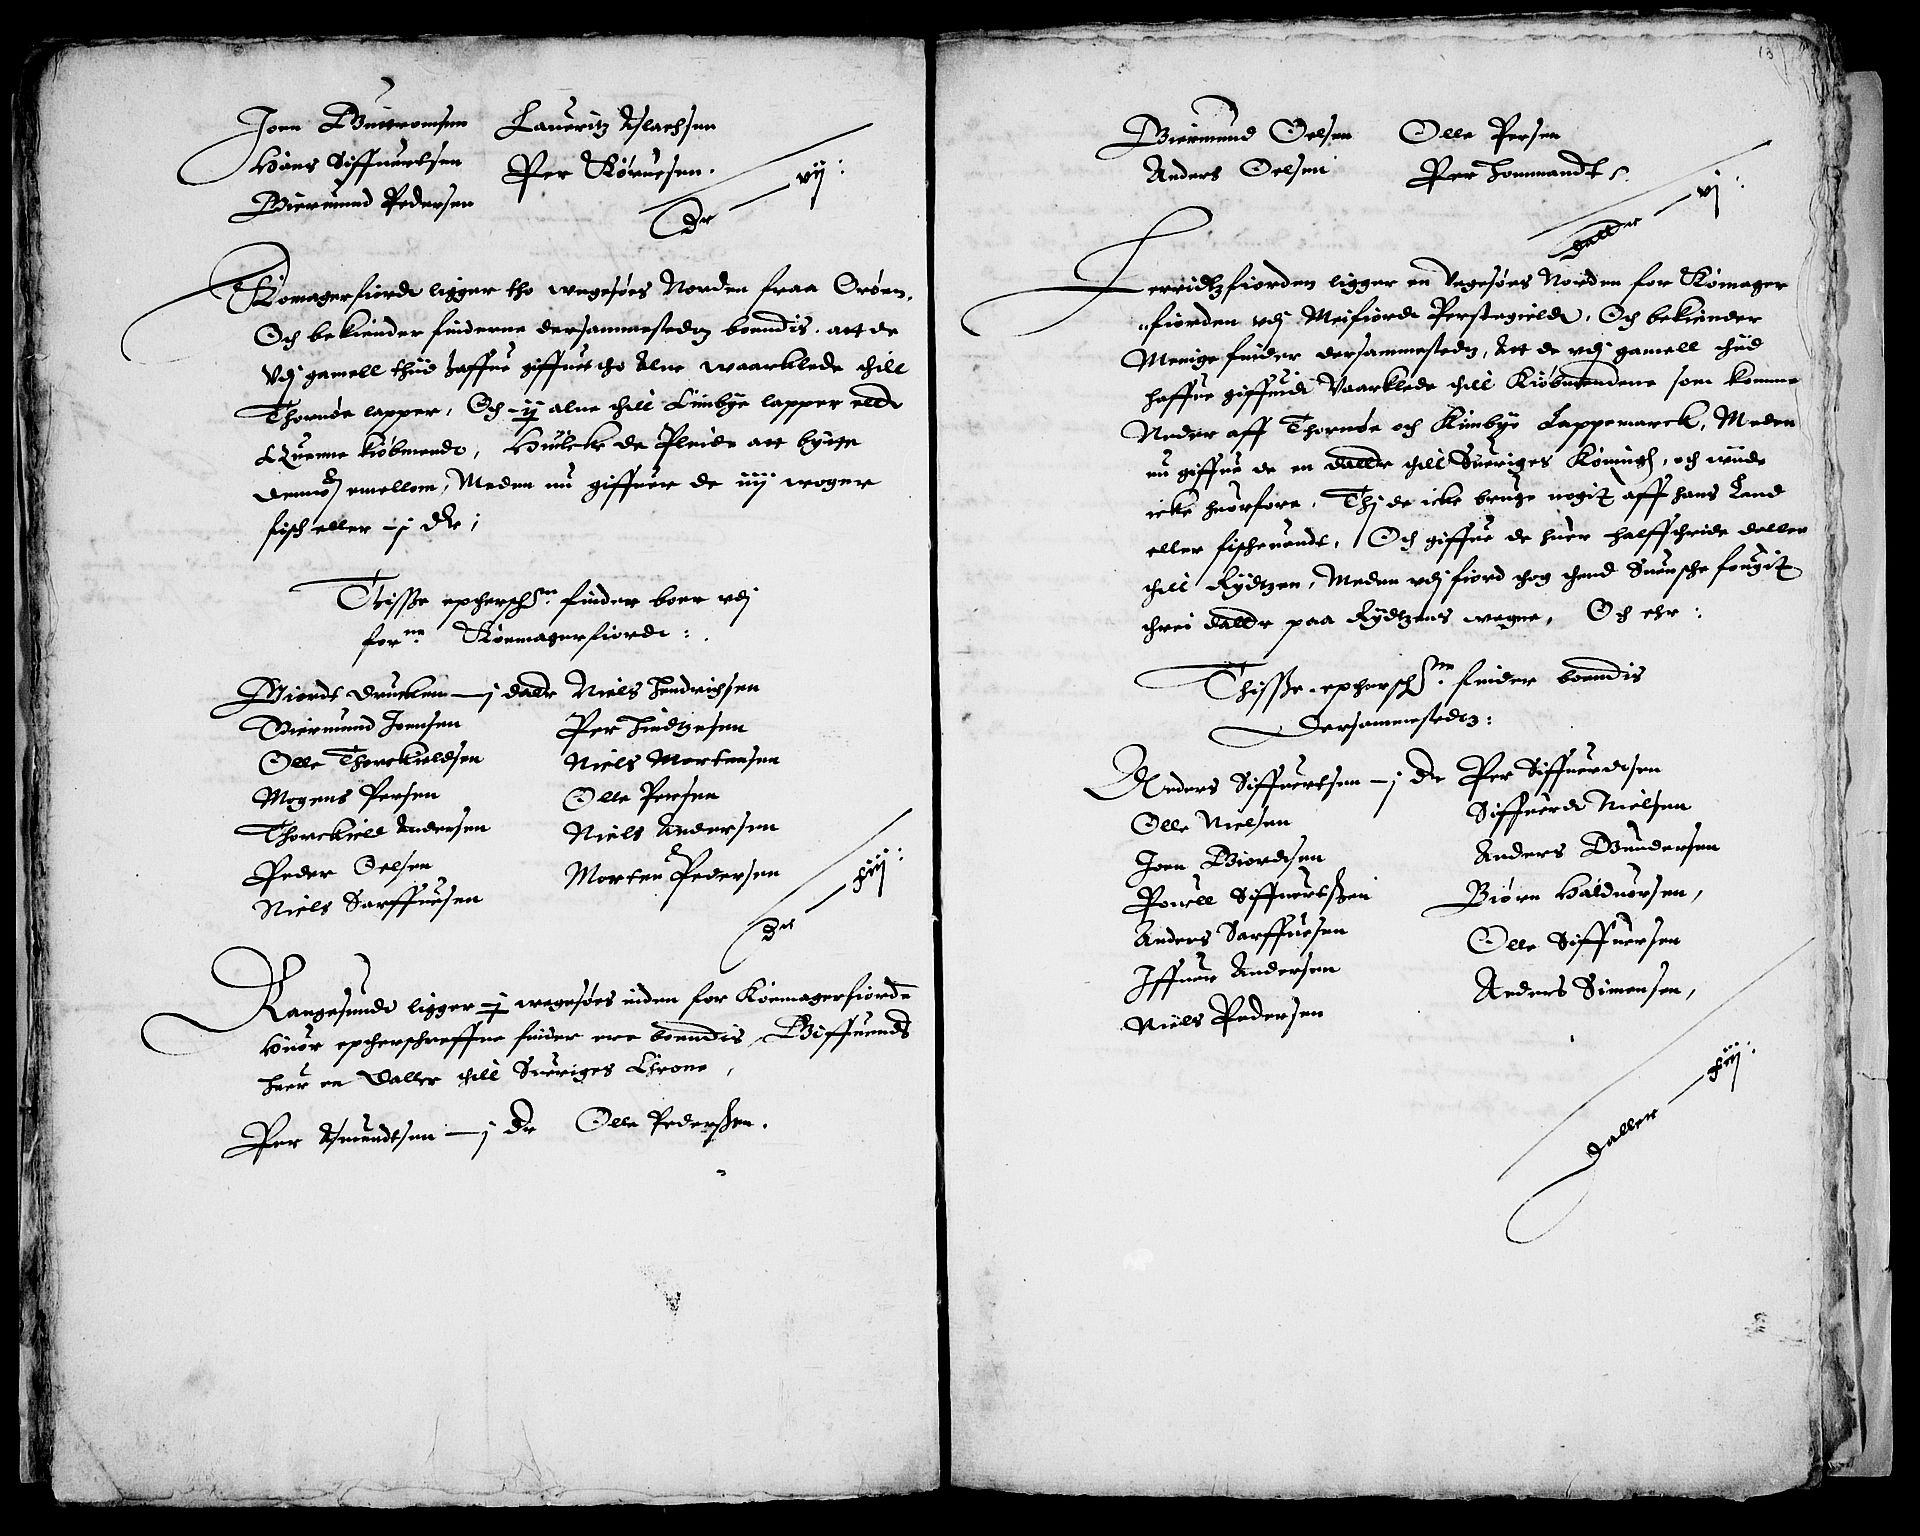 Joen Guttromsen Lauritz Aslachsen
Hans Siffuertsen Per Körnesen.
Giermund Pedersen
dr — vij:
Komagerfiordt ligger tho wegesöes Norden fraa Oröen,
Och bekiender finderne dersammestedtz boendis. att de
vdj gamell thiid haffue giffuet tho Alne waarklede thill
Thornöe lapper, Och –ij alne thill Kimbye lapper eller
Quenne kiöbmendt, Huilcke de Pleide att bytte
dennom emellom, Meden nu giffuer de iiij woger
fisch eller –j dlr;
Thisse epterschne finder boer vdj
forne Kommagerfiordt:
Giordt Drucken — j daler Niels Hendrichsen
Giermund Joensen Per Findtzesen
Olle Thorckieldsen Niels Mortensen
Mogens Persen Olle Persen
Thorckiell Andersen Niels Andersen
Peder Oelsen Morten Pedersen
Niels Sarffuesen
dr — xiij:
Rangesundt ligger –j wegesöes inden for Komagerfiorde
Huor epterschreffne finder ere boendis, Giffuendes
huer en Daller thill Sueriges Chrone,
Per Asmundtsen — j dr Olle Pederssen.
13
Giermund Oelsen Olle Persen
Anders Oelsen Per Hommandt
daller — vj:
Lerridtzfiorden ligger en Vegesöes Norden for Komager
fiorden vdj Meifiordt Perstegieldt, Och bekiender
Menige finder dersammestedtz, Att de vdj gamell thiid
haffue giffuidt Vaarklede thill Kiöbmendene som komme
Neder aff Thornöe och Kimbye Lappemarck, Meden
nu giffue de en daller thill Sueriges Konningh, och wiide
icke huorfore, Thj de icke bruge nogit aff hans Land
eller fischeuandt, Och giffue de huer halffthride daller
thill Rydtzen, Meden vdj fiord thog thend Suensche fougit
threi daler paa Rydtzens wegne, Och ehr:
Thisse epterschne finder boendis
Dersammestedtz:
Anders Siffuertsen — j dr Per Siffuerdtsen
Olle Nielsen Siffuerdt Nielsen
Joen Giordtsen Anders Gundersen
Pouell Siffuertssen Biörn Halduorsen,
Anders Sarffuesen Olle Siffuersen
Iffuer Andersen Anders Simensen,
Niels Pedersen
Daller — xiij: